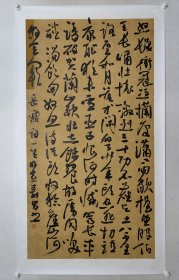 怒髮衝冠憑欄處瀟瀟雨歇抬望眼仰
天長嘯壯懷激烈三十功名塵土八千
里路雲和月莫等閒白了少年頭空悲切靖
康恥猶未雪臣子恨何時滅駕長車
踏破賀蘭山缺壯志飢餐胡虜肉笑
談渴飲匈奴血待從頭收拾舊山河
朝天闕 岳飛詞一首